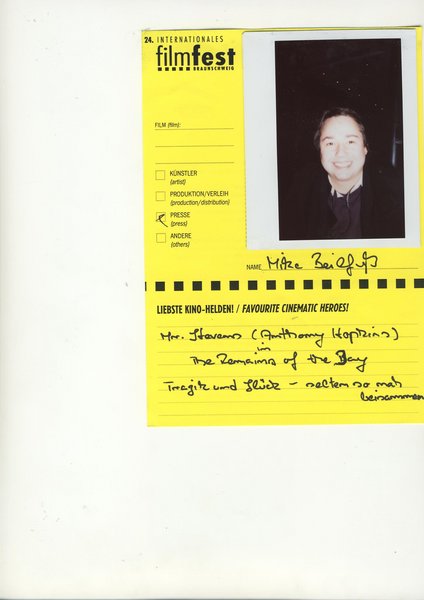 24. INTERNATIONALES
filmfest
BRAUNSCHWEIG
FILM (film):
KÜNSTLER
(artist)
PRODUKTION/VERLEIH
(production/distribution)
PRESSE
(press)
ANDERE
(others)
NAME
LIEBSTE KINO-HELDEN! / FAVOURITE CINEMATIC HEROES!
Mr. Stevens (Anthony Hopkins)
in
The Remains of the Day
Tragik und Glück – selten so nah
beisammen